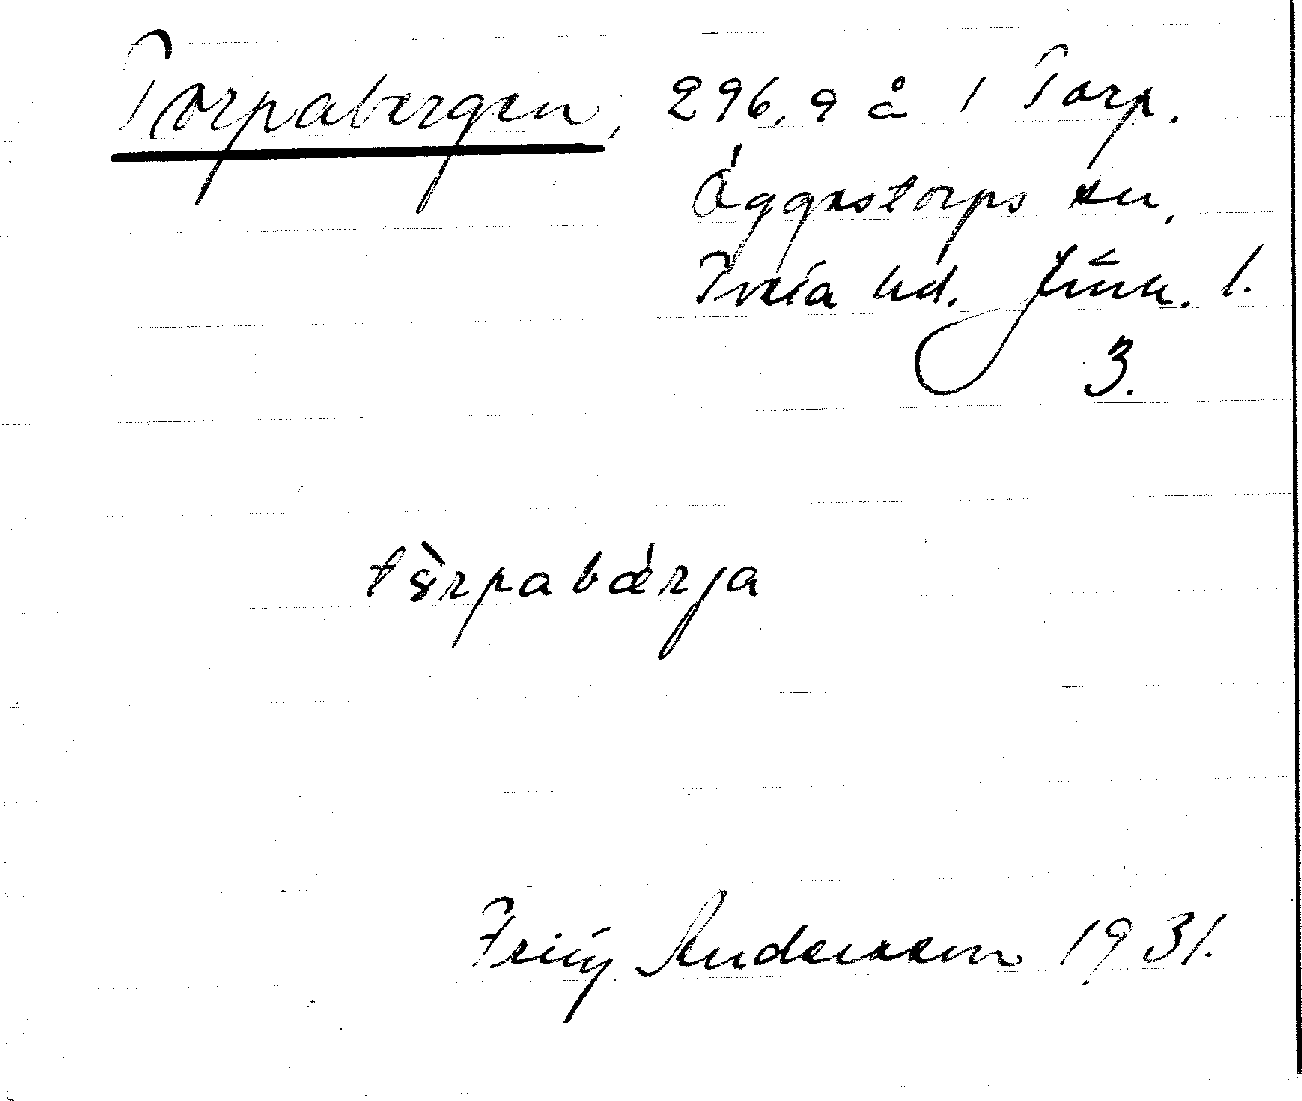 Torpabergen, 296,9 å 1 Torp.
Öggestorps sn,
Tveta hd. Jönk. l.
3.
tòrpabǽrja
Frity Andersson 1931.